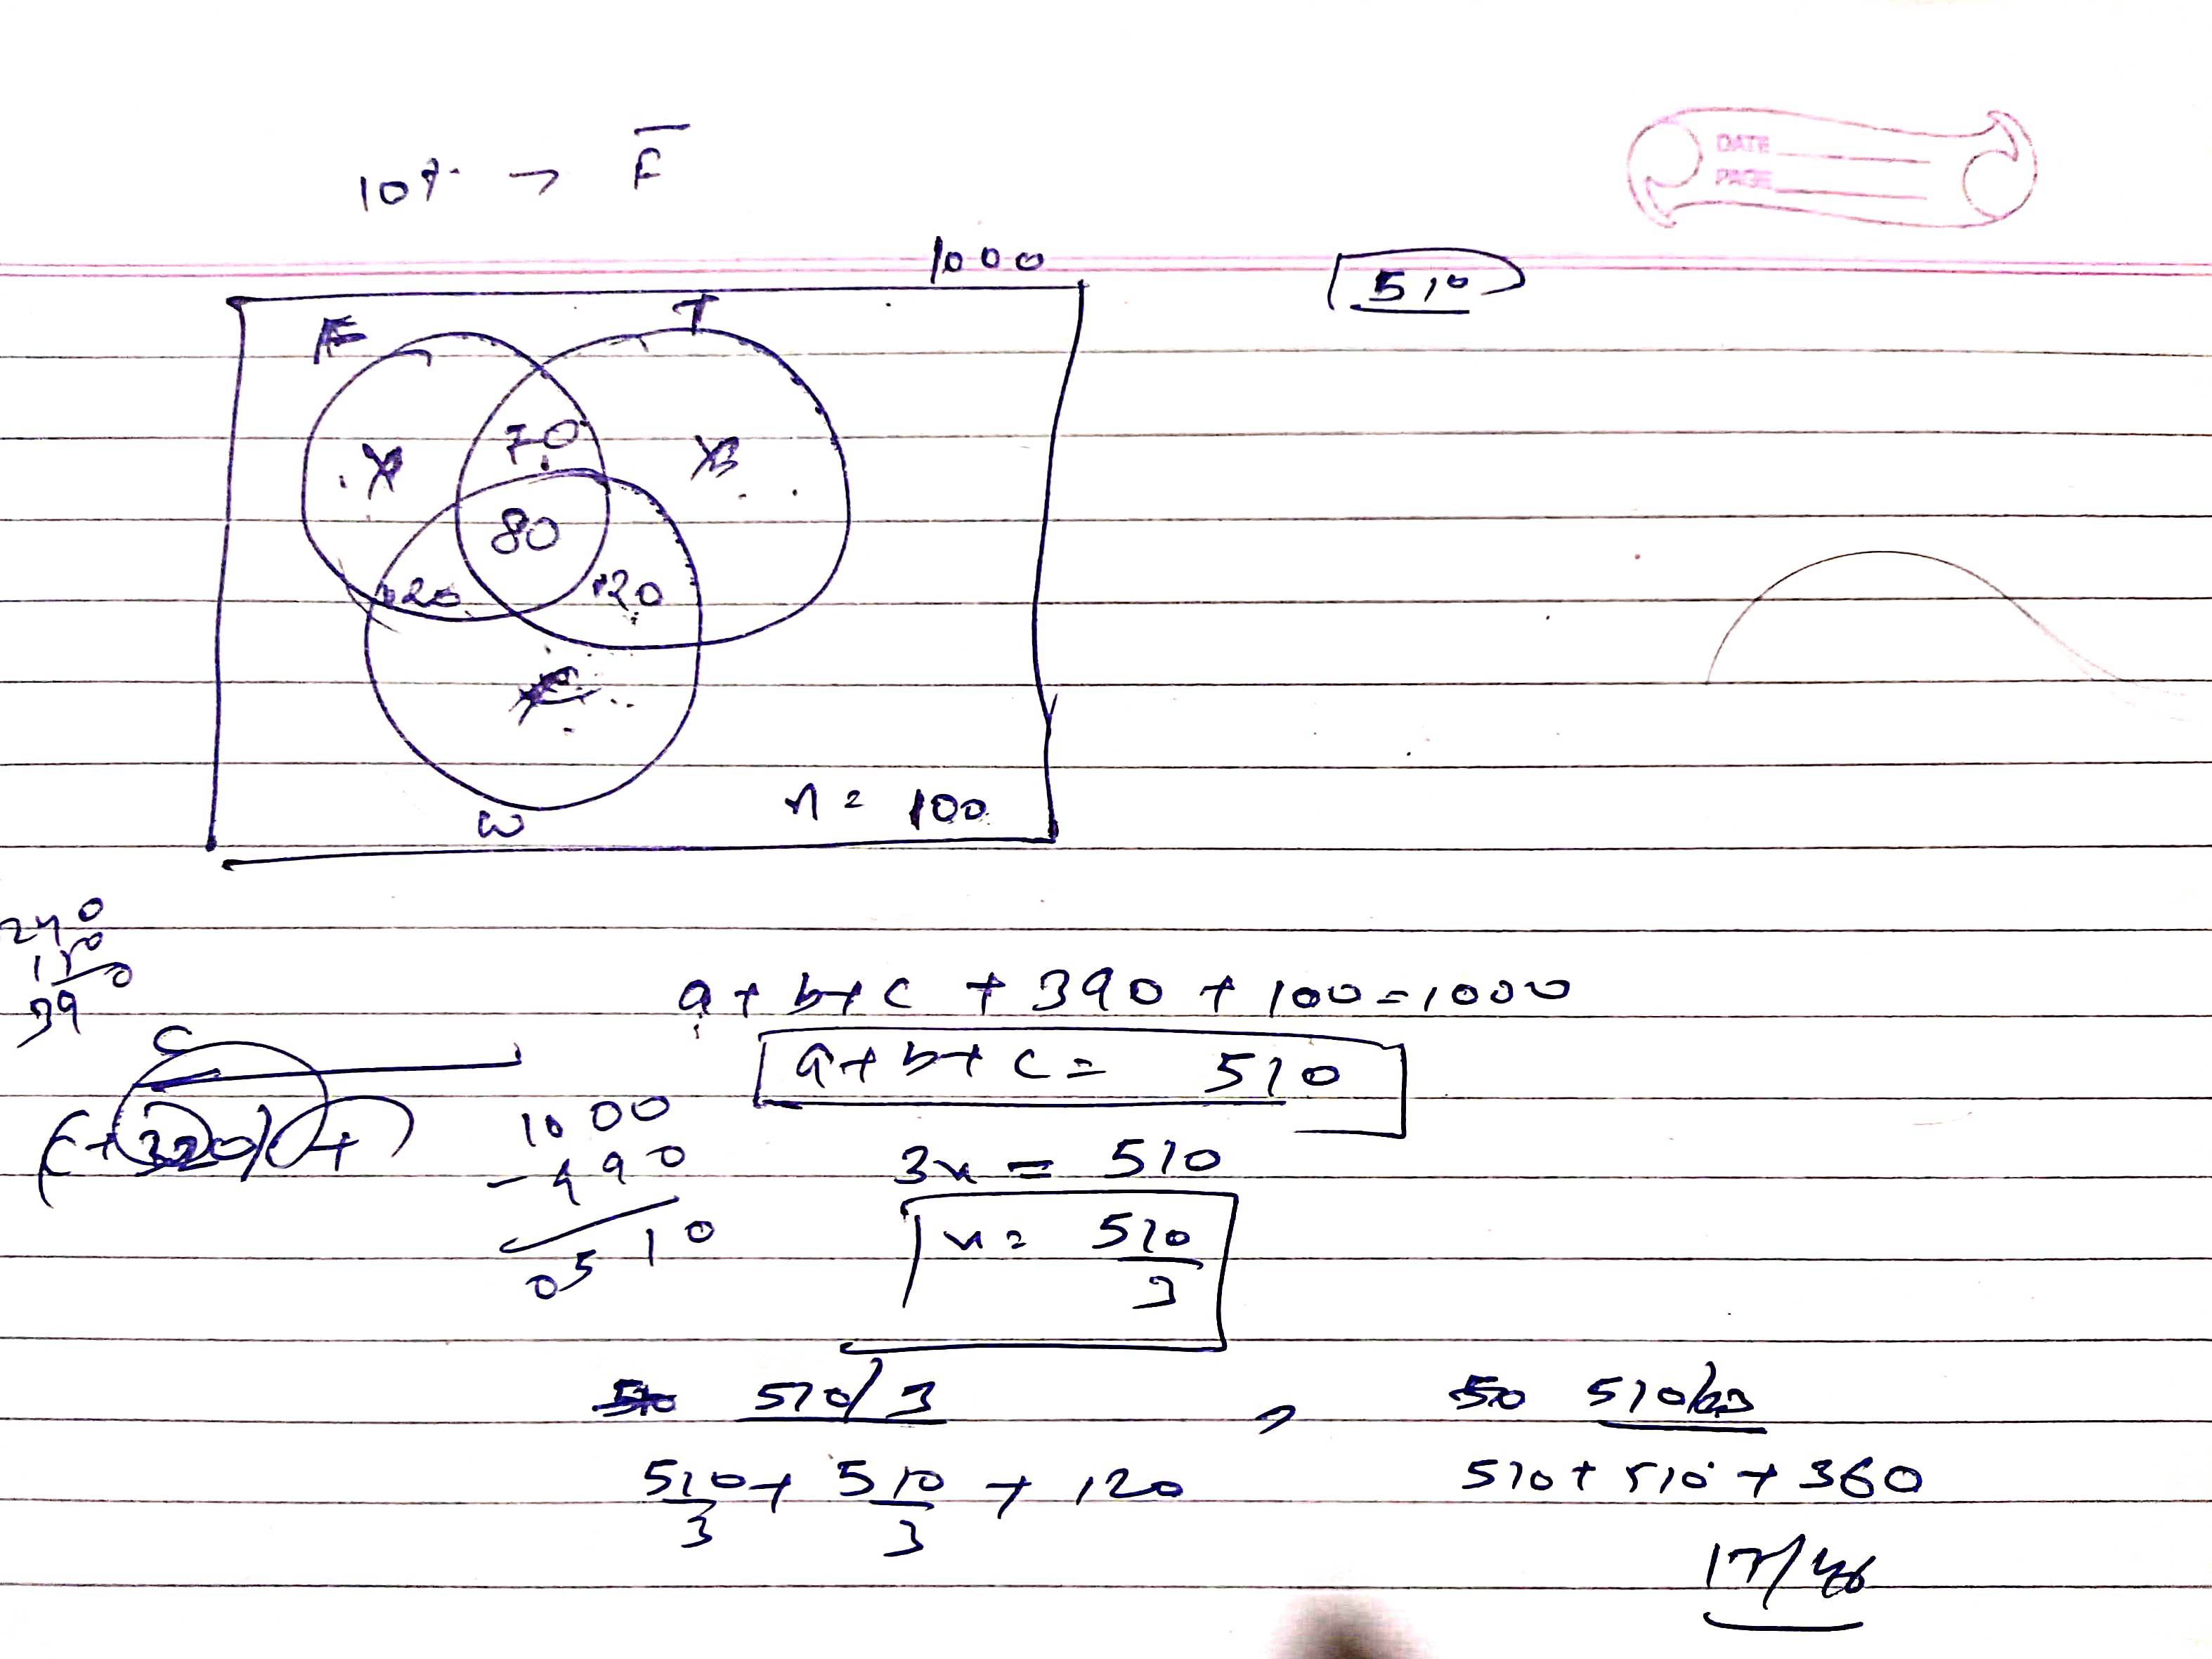 10% → F̅
DATE
PAGE
1000
510
F
T
70
80
120
120
W
n = 100
240
150
390
a + b + c + 390 + 100 = 1000
a + b + c = 510
1000
- 490
0510
3x = 510
x = 510/3
510/3 ,
510/3 + 510/3 + 120
510 + 510 + 360
17/46